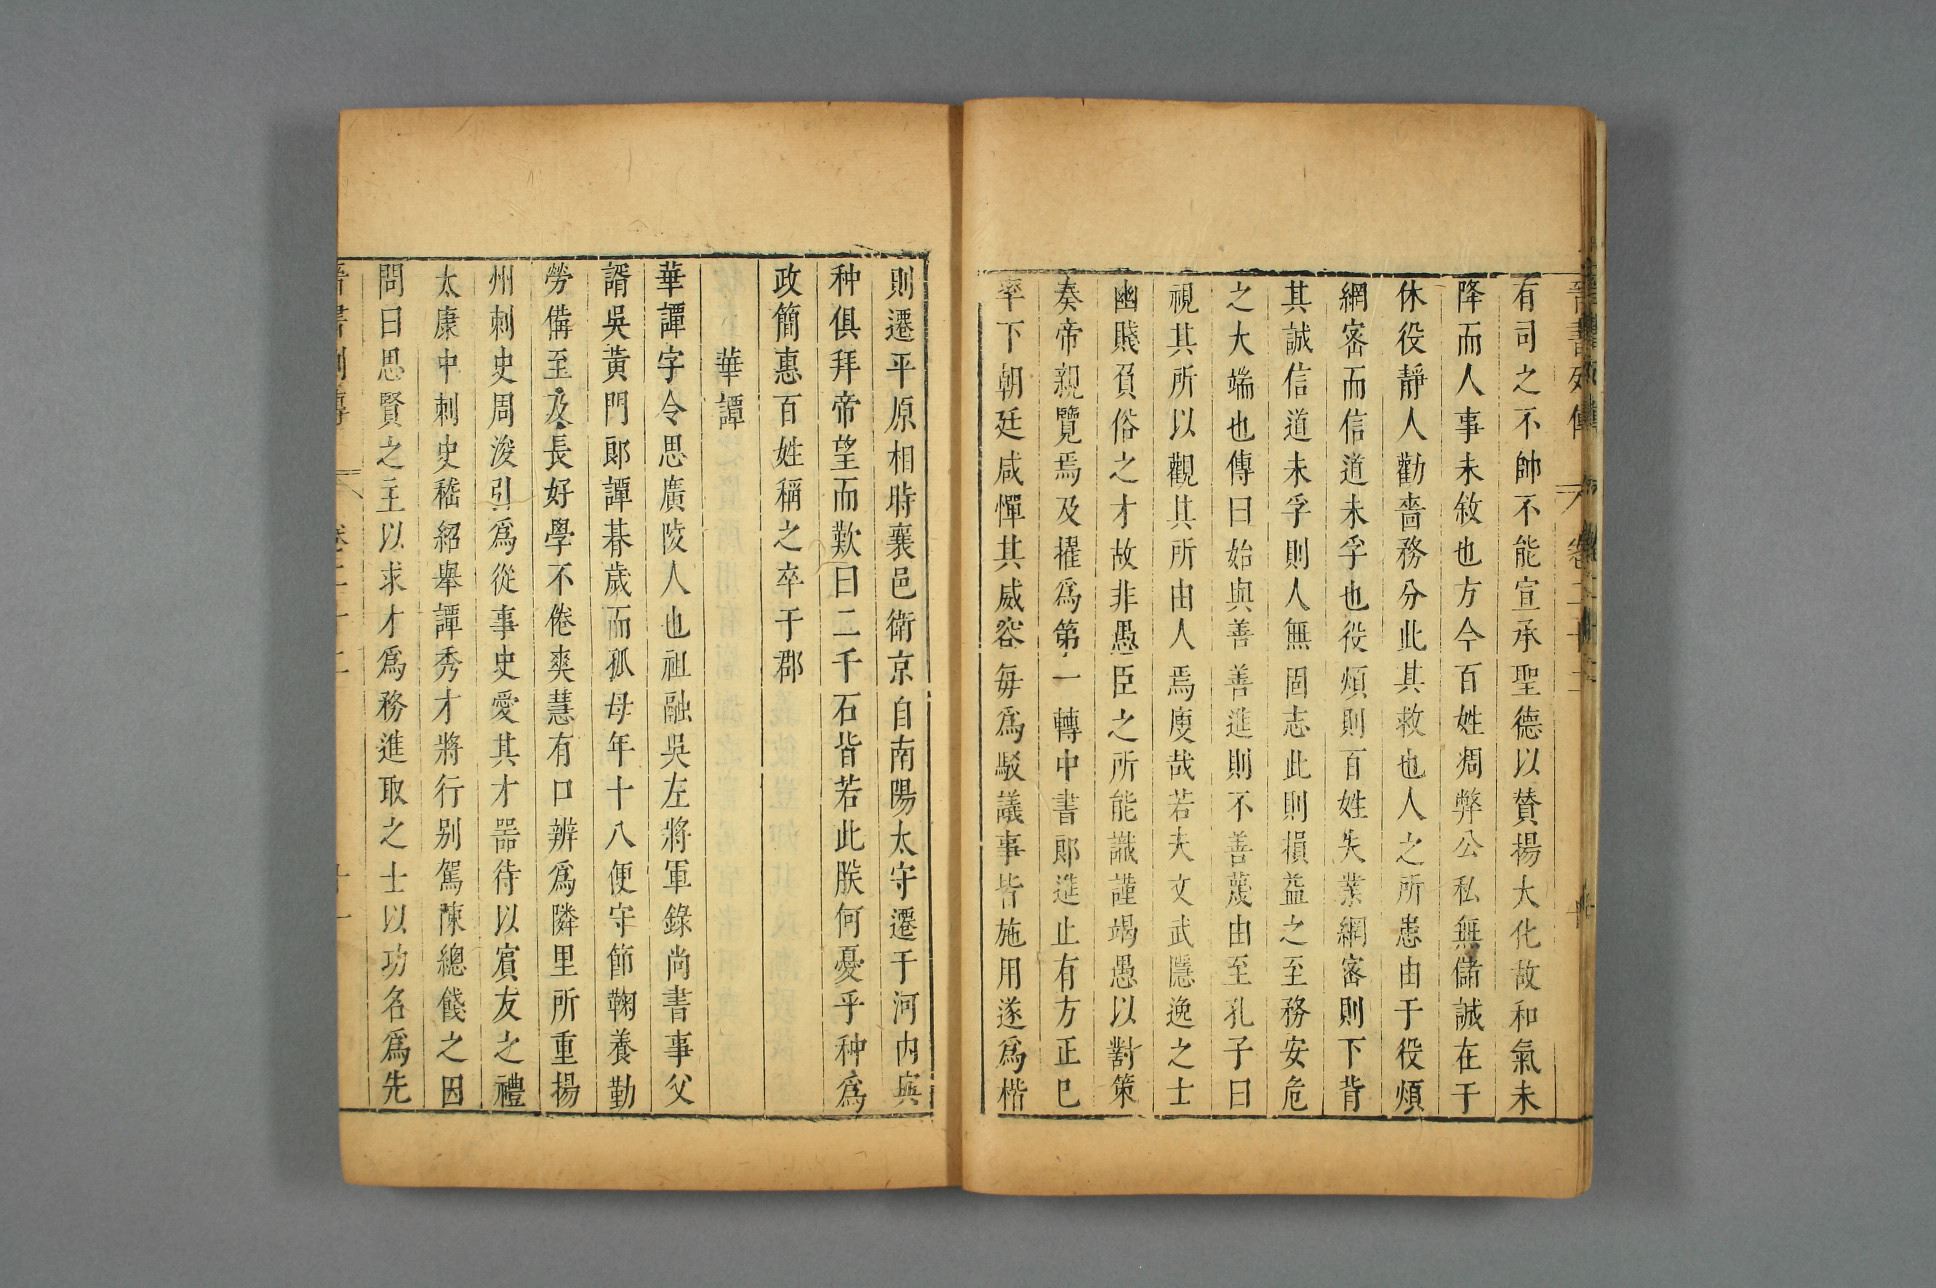 晉書列傳 卷二十二 十
有司之不帥不能宣承聖德以賛揚大化故和氣未
降而人事未敘也方今百姓凋弊公私無儲誠在于
休役靜人勸嗇務分此其救也人之所患由于役煩
網密而信道未孚也役煩則百姓失業網密則下背
其誠信道未孚則人無固志此則損益之至務安危
之大端也傳曰始與善善進則不善蔑由至孔子曰
視其所以觀其所由人焉廋哉若夫文武隱逸之士
幽賤負俗之才故非愚臣之所能識謹竭愚以對策
奏帝親覽焉及擢爲第一轉中書郎進止有方正己
率下朝廷咸憚其威容每爲駁議事皆施用遂爲楷
則遷平原相時襄邑衛京自南陽太守遷于河内與
种俱拜帝望而歎曰二千石皆若此朕何憂乎种爲
政簡惠百姓稱之卒于郡
華譚
華譚字令思廣陵人也祖融吳左將軍錄尚書事父
諝吳黃門郎譚朞歲而孤母年十八便守節鞠養勤
勞備至及長好學不倦爽慧有口辨爲隣里所重揚
州刺史周浚引爲從事史愛其才噐待以賓友之禮
太康中刺史嵇紹舉譚秀才將行别駕陳總餞之因
問曰思賢之主以求才爲務進取之士以功名爲先
晉書列傳 卷二十二 十一